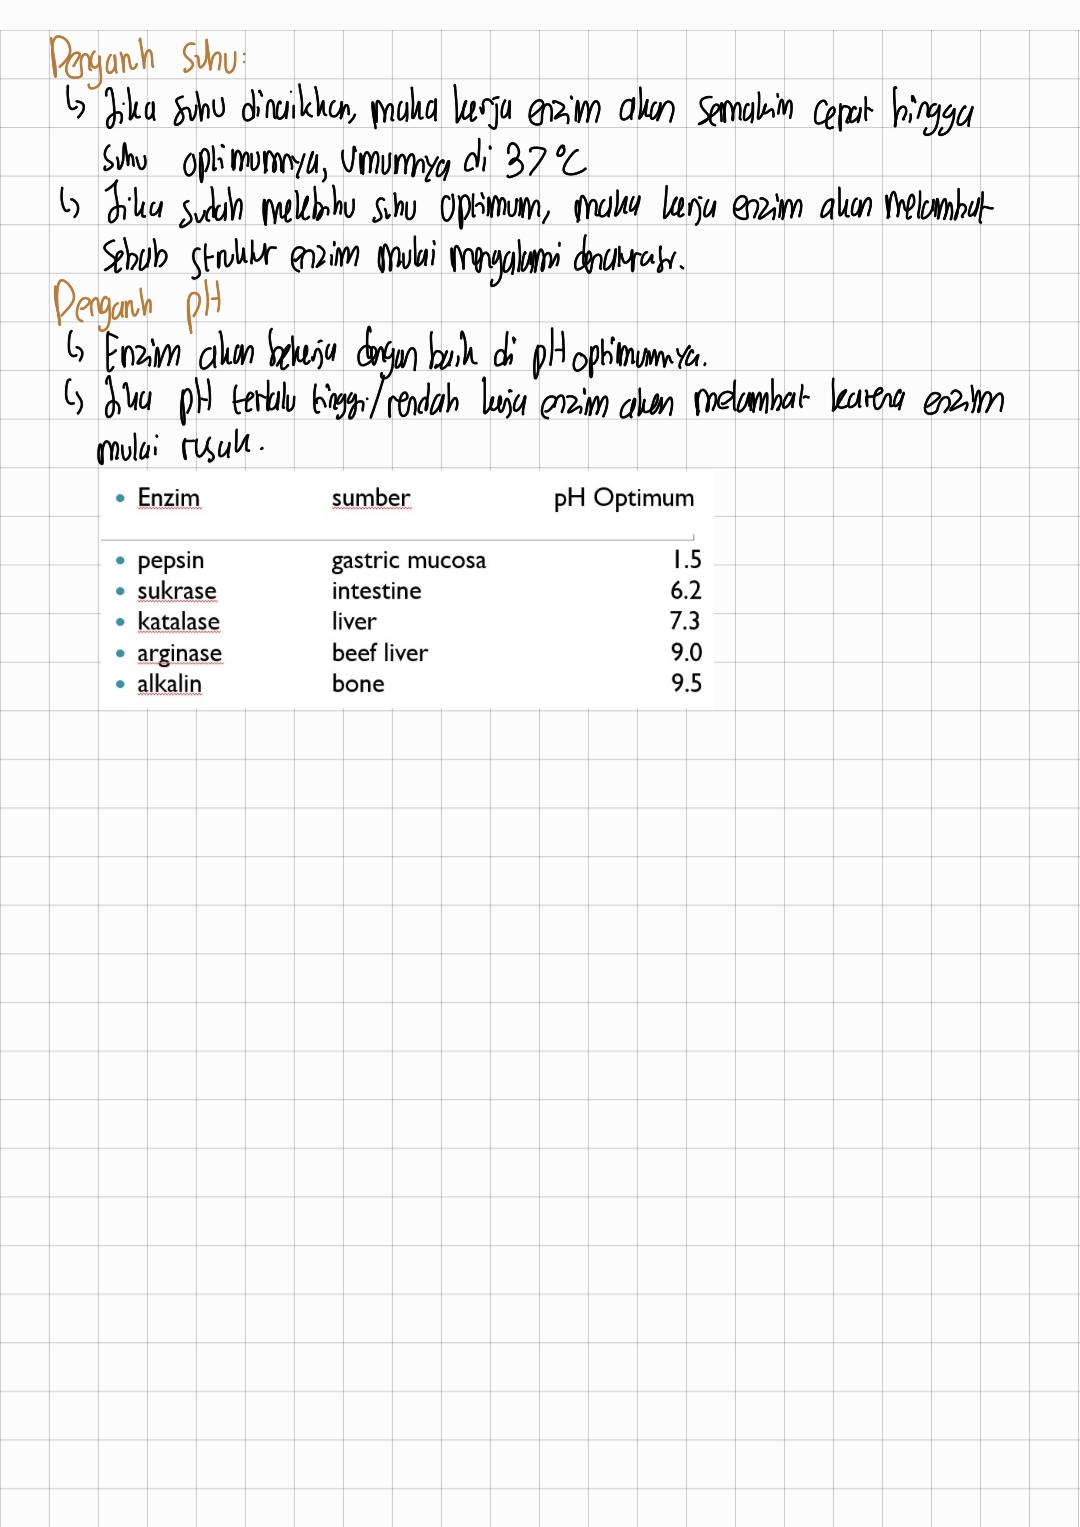 Pengaruh suhu:
↳ Jika suhu dinaikkan, maka kerja enzim akan semakin cepat hingga
suhu optimumnya, umumnya di 37°C
↳ Jika sudah melebihu suhu optimum, maka kerja enzim akan melambat
sebab struktur enzim mulai mengalami denaturasi.
Pengaruh pH
↳ Enzim akan bekerja dengan baik di pH optimumnya.
↳ Jika pH terlalu tinggi/rendah kerja enzim akan melambat karena enzim
mulai rusak.
• Enzim sumber pH Optimum
• pepsin gastric mucosa 1.5
• sukrase intestine 6.2
• katalase liver 7.3
• arginase beef liver 9.0
• alkalin bone 9.5